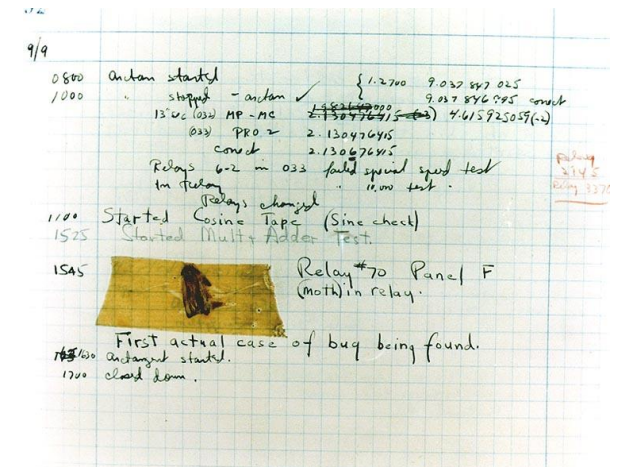 9/9
0800 Antan started
1000 " stopped - antan ✓ { 1.2700 9.037 847 025
9.037 846 995 correct
13"uc (032) MP - MC 2.130476415 (-3) 4.615925059(-2)
(033) PRO 2 2.130476415
correct 2.130676415
Relays 6-2 in 033 failed special speed test
In Relay " 10,000 test .
Relays changed
Relay
3370
1100 Started Cosine Tape (Sine check)
1525 Started Mult + Adder Test.
1545 Relay #70 Panel F
(moth) in relay.
First actual case of bug being found.
1630 antangent started.
1700 closed down .